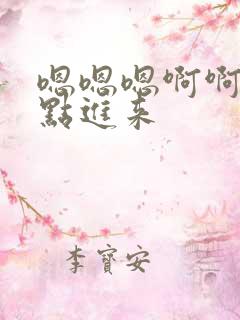 嗯嗯嗯啊啊
點進来
李寶安